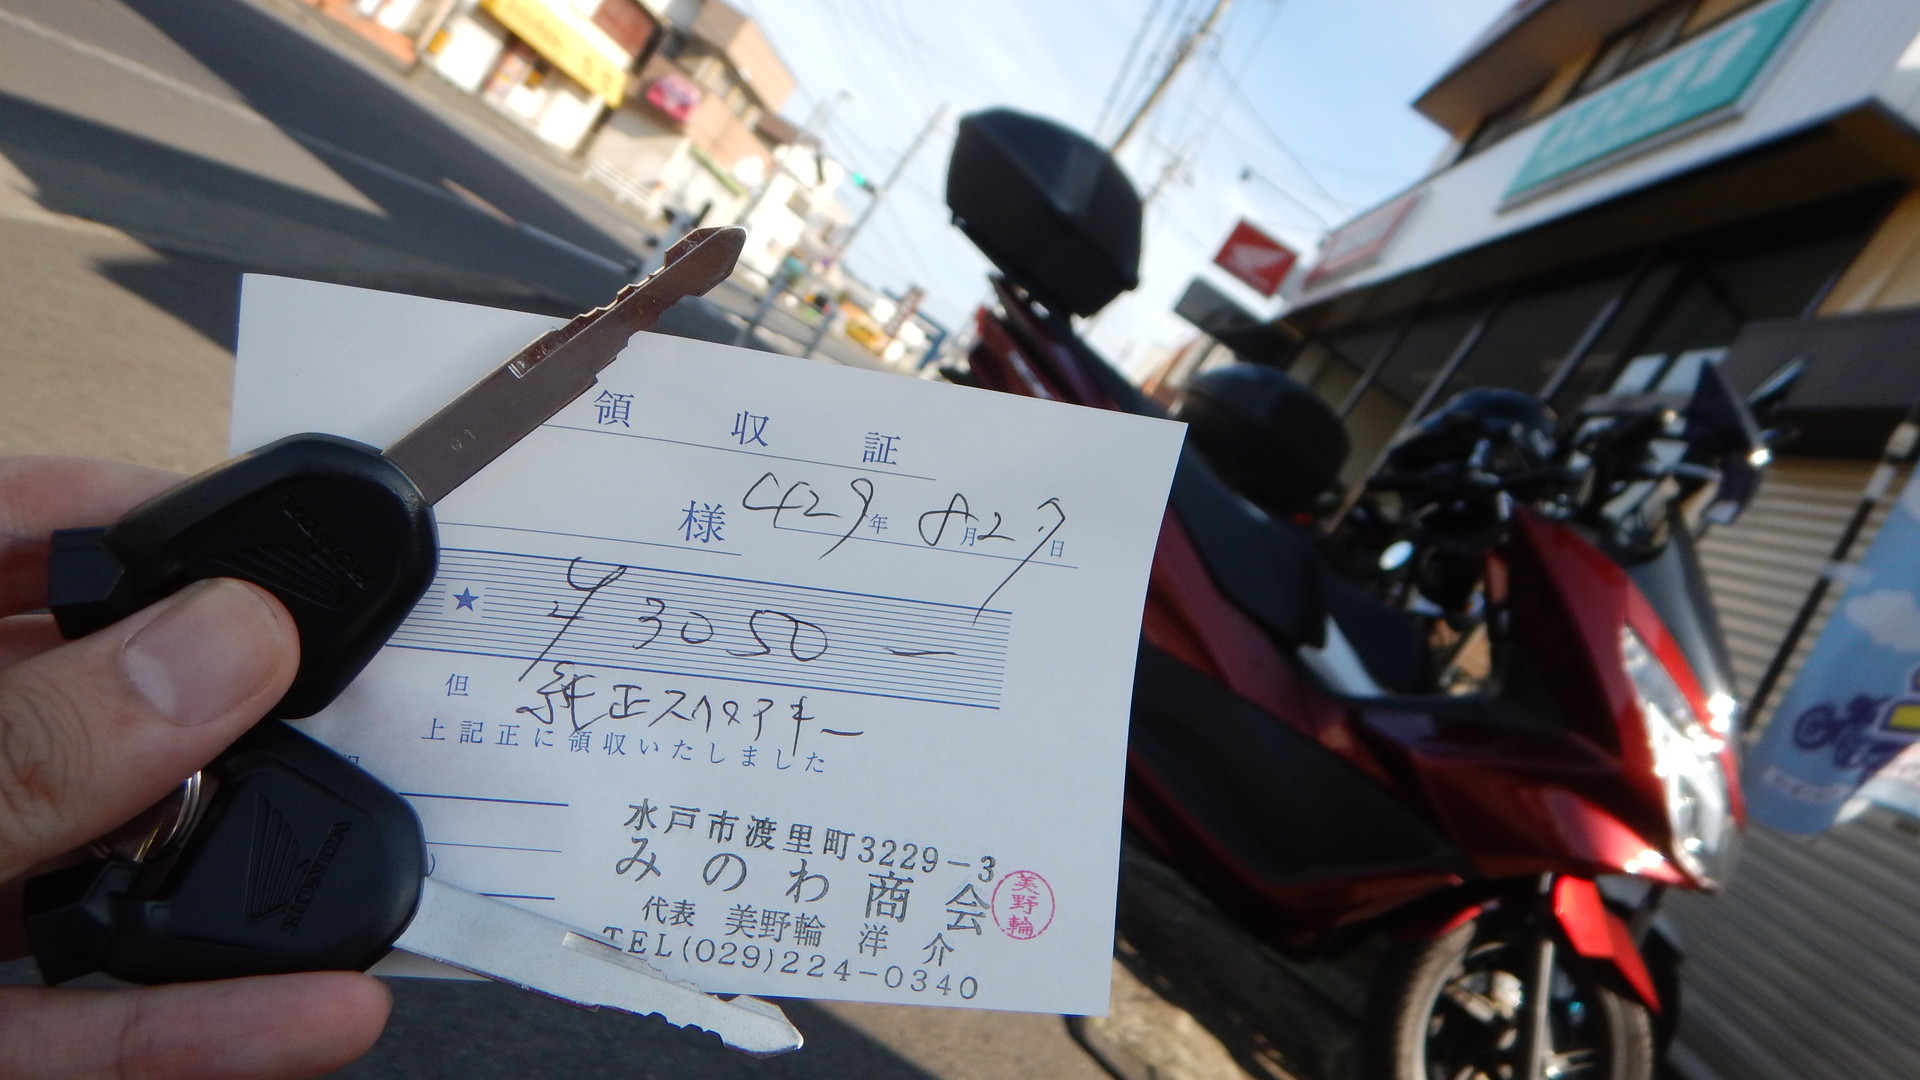 領収証
様 H29年 8月27日
★ ¥3050-
但 純正スペアキー
上記正に領収いたしました
水戸市渡里町3229-3
みのわ商会
代表 美野輪 洋介
TEL(029)224-0340
美野輪
HONDA
HONDA
G1